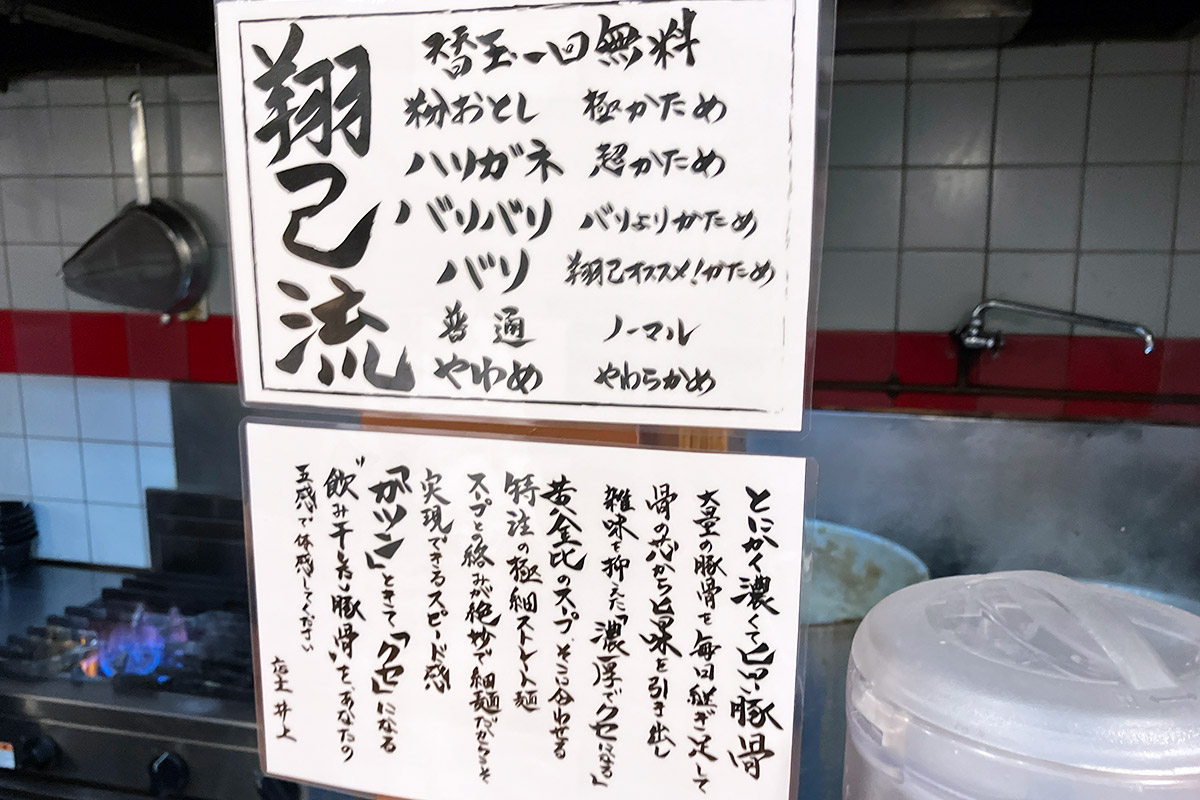 翔己流
替玉一回無料
粉おとし 極かため
ハリガネ 超かため
バリバリ バリよりかため
バリ 翔己オススメ!かため
普通 ノーマル
やわめ やわらかめ
とにかく濃くて旨い豚骨
大量の豚骨を毎日継ぎ足して
骨の芯から旨味を引き出し
雑味を抑えた「濃厚でクセになる」
黄金比のスープ、そこに合わせる
特注の極細ストレート麺
スープとの絡みが絶妙で細麺だからこそ
実現できるスピード感
「ガツン」ときて「クセ」になる
"飲み干し旨い豚骨"を、あなたの
五感で体感してください
店主 井上